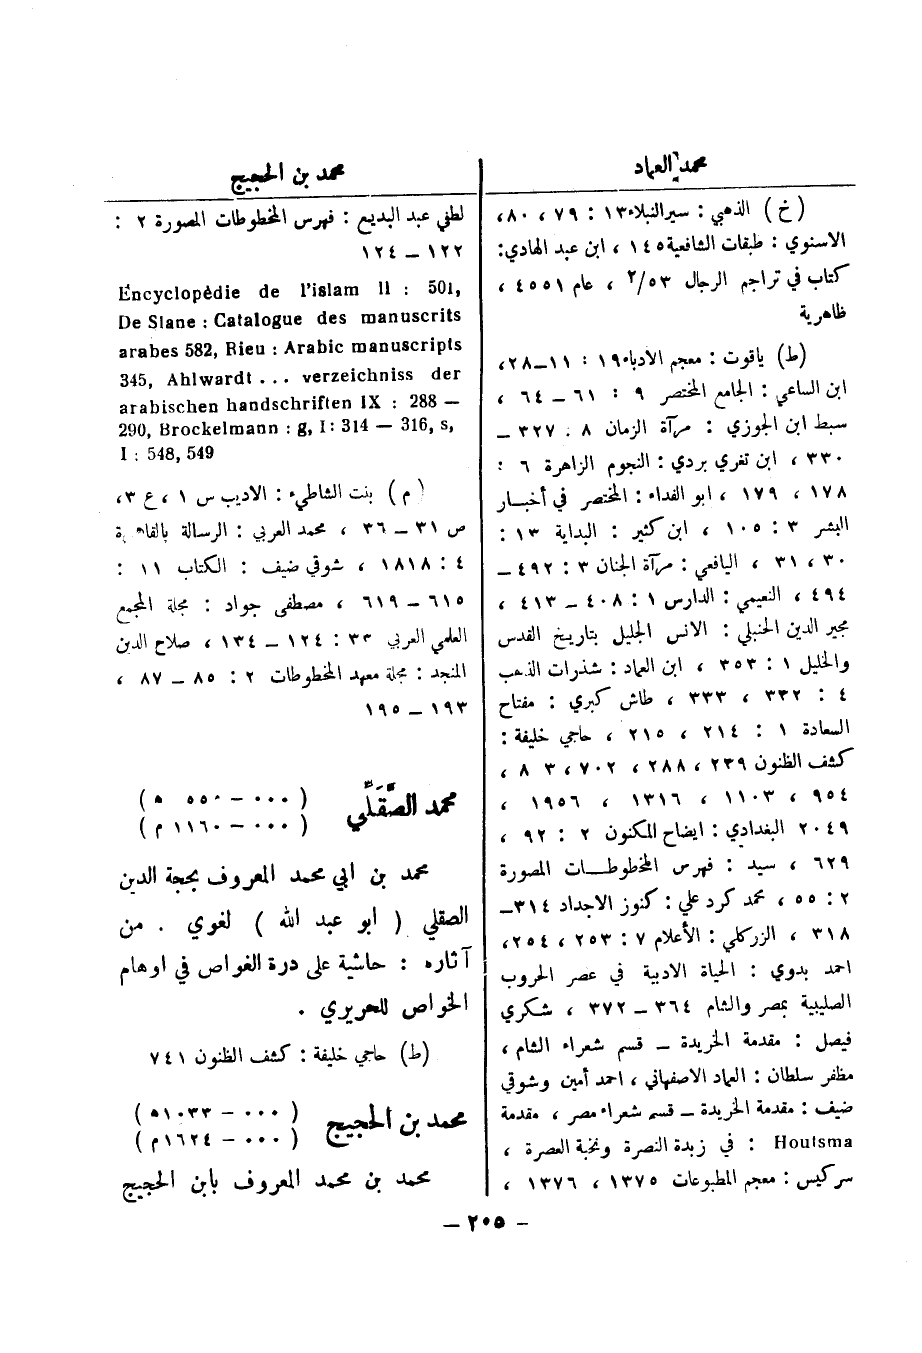 محمد العماد
(خ) الذهبي : سير النبلاء ١٣ : ٧٩ ، ٨٠،
الاسنوي : طبقات الشافعية ١٤٥ ، ابن عبد الهادي:
كتاب في تراجم الرجال ٥٣/٢ ، عام ٤٥٥١ ،
ظاهرية
(ط) ياقوت : معجم الادباء ١٩ : ١١ــ٢٨،
ابن الساعي : الجامع المختصر ٩ : ٦١ ــ ٦٤ ،
سبط ابن الجوزي : مرآة الزمان ٨ . ٣٢٧ ــ
٣٣٠ ، ابن تغري بردي : النجوم الزاهرة ٦ :
١٧٨ ، ١٧٩ ، ابو الفداء : المختصر في أخبار
البشر ٣ : ١٠٥ ، ابن كثير : البداية ١٣ :
٣٠ ، ٣١ ، اليافعي : مرآة الجنان ٣ : ٤٩٢ ــ
٤٩٤ ، النعيمي : الدارس ١ : ٤٠٨ ــ ٤١٣ ،
مجير الدين الحنبلي : الانس الجليل بتاريخ القدس
والخليل ١ : ٣٥٣ ، ابن العماد : شذرات الذهب
٤ : ٣٣٢ ، ٣٣٣ ، طاش كبري : مفتاح
السعادة ١ : ٢١٤ ، ٢١٥ ، حاجي خليفة :
كشف الظنون ٢٣٩ ، ٢٨٨ ، ٧٠٢ ، ٨٠٣ ،
٩٥٤ ، ١١٠٣ ، ١٣١٦ ، ١٩٥٦ ،
٢٠٤٩ البغدادي : ايضاح المكنون ٢ : ٩٢ ،
٦٢٩ ، سيد : فهرس المخطوطات المصورة
٢ : ٥٥ ، محمد كرد علي : كنوز الاجداد ٣١٤ــ
٣١٨ ، الزركلي : الأعلام ٧ : ٢٥٣ ، ٢٥٤،
احمد بدوي : الحياة الادبية في عصر الحروب
الصليبية بمصر والشام ٣٦٤ ــ ٣٧٢ ، شكري
فيصل : مقدمة الخريدة ــ قسم شعراء الشام ،
مظفر سلطان : العماد الاصفهاني ، احمد أمين وشوقي
ضيف : مقدمة الخريدة ــ قسم شعراء مصر ، مقدمة
Houtsma : في زبدة النصرة ونخبة العصرة ،
سركيس : معجم المطبوعات ١٣٧٥ ، ١٣٧٦ ،
محمد بن الحجيج
لطفي عبد البديع : فهرس المخطوطات المصورة ٢ :
١٢٢ ــ ١٢٤
Encyclopédie de l'islam II : 501,
De Slane : Catalogue des manuscrits
arabes 582, Rieu : Arabic manuscripts
345, Ahlwardt ... verzeichniss der
arabischen handschriften IX : 288 —
290, Brockelmann : g, I : 314 — 316, s,
I : 548, 549
(م) بنت الشاطيء : الاديب س ١ ، ع ٣،
ص ٣١ ــ ٣٦ ، محمد العربي : الرسالة بالقاهرة
٤ : ١٨١٨ ، شوقي ضيف : الكتاب ١١ :
٦١٥ ــ ٦١٩ ، مصطفى جواد : مجلة المجمع
العلمي العربي ٣٣ : ١٢٤ ــ ١٣٤ ، صلاح الدين
المنجد : مجلة معهد المخطوطات ٢ : ٨٥ ــ ٨٧ ،
١٩٣ ــ ١٩٥
محمد الصَّقَلِّي ( ٠٠٠ ــ ٥٥٠ ه )
( ٠٠٠ ــ ١١٦٠ م )
محمد بن ابي محمد المعروف بحجة الدين
الصقلي ( ابو عبد الله ) لغوي . من
آثاره : حاشية على درة الغواص في اوهام
الخواص للحريري .
(ط) حاجي خليفة : كشف الظنون ٧٤١
محمد بن الحجيج ( ٠٠٠ ــ ١٠٣٣ه )
( ٠٠٠ ــ ١٦٢٤م )
محمد بن محمد المعروف بابن الحجيج
ــ ٢٠٥ ــ